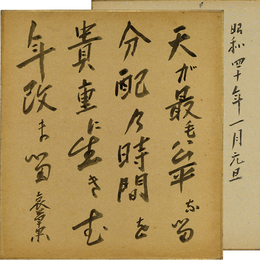 昭和四十年一月元旦
天が最も公平なる
分配乃時間を
貴重に生きむ
年改まる